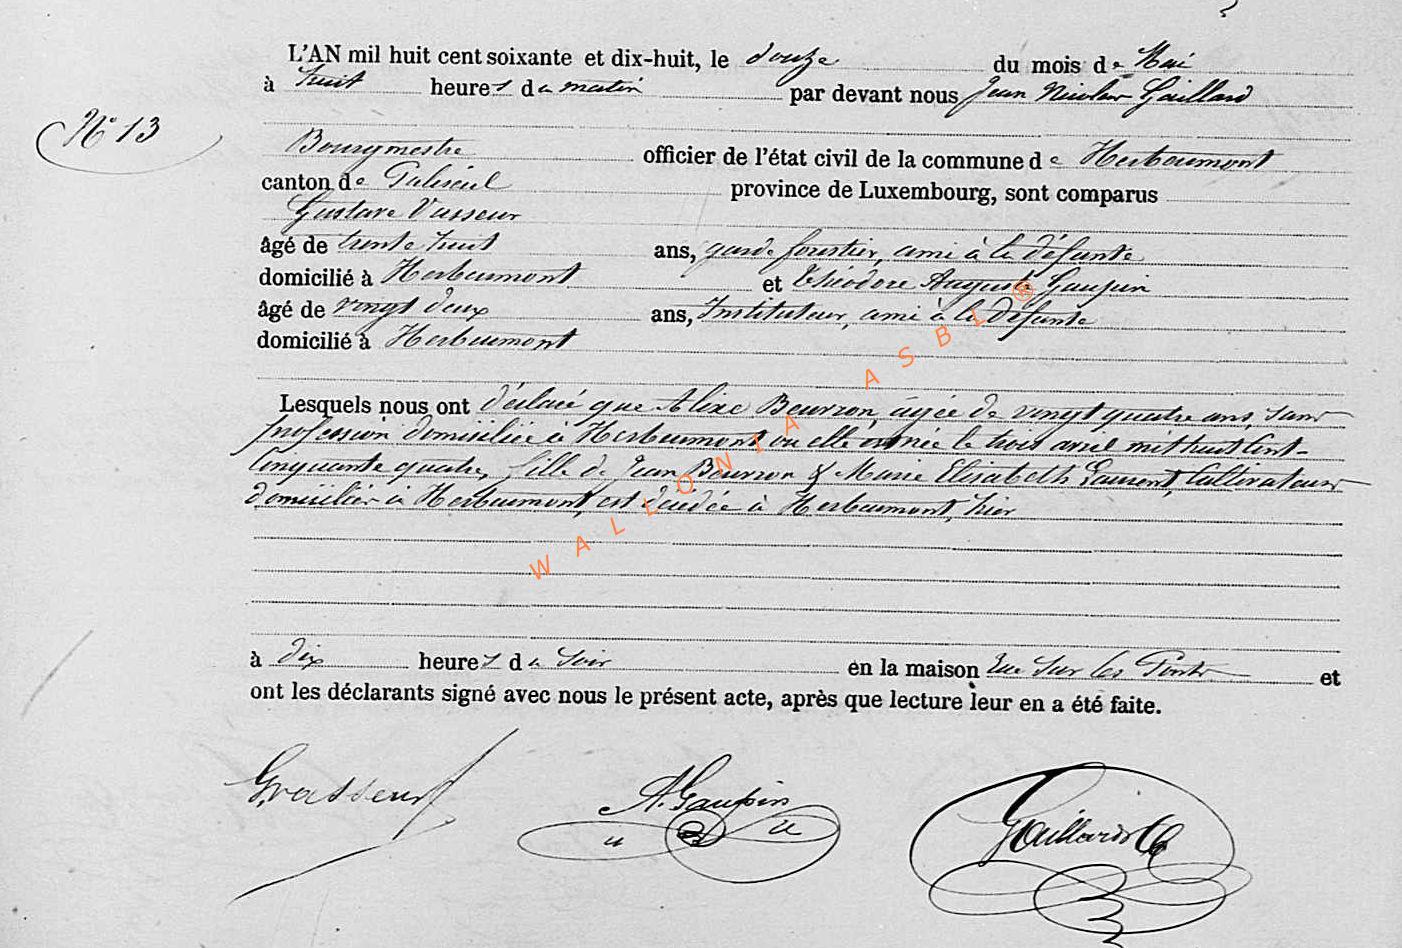 L'AN mil huit cent soixante et dix-huit, le douze du mois de Mai
à huit heures du matin par devant nous Jean Nicolas Gaillard
N° 13
Bourgmestre officier de l'état civil de la commune de Herbeumont
canton de Paliseul province de Luxembourg, sont comparus
Gustave Vasseur
âgé de trente huit ans, garde forestier, ami à la défunte
domicilié à Herbeumont et Théodore Auguste Gaupin
âgé de vingt deux ans, Instituteur, ami à la défunte
domicilié à Herbeumont
Lesquels nous ont déclaré que Alixe Beurzon âgée de vingt quatre ans, sans
profession domiciliée à Herbeumont où elle est née le trois avril mil huit Cent-
Cinquante quatre, fille de Jean Beurzon & Marie Elisabeth Laurent, Cultivateurs
domiciliés à Herbeumont, est décédée à Herbeumont, hier
à dix heures du soir en la maison rue sur les Ponts et
ont les déclarants signé avec nous le présent acte, après que lecture leur en a été faite.
GVasseur A. Gaupin Gaillard
WALLONIA ASBL ®